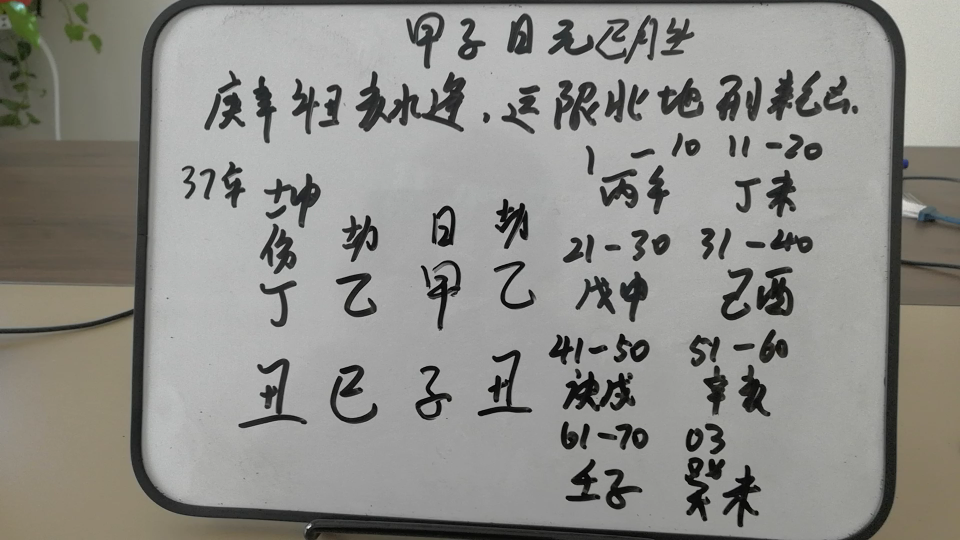 甲子日元巳月生
庚辛斗丑亥水逢，运限北地刑耗亡.
37年 坤
伤 劫 日 劫
丁 乙 甲 乙
丑 巳 子 丑
1-10 11-20
丙午 丁未
21-30 31-40
戊申 己酉
41-50 51-60
庚戌 辛亥
61-70 03
壬子 癸未